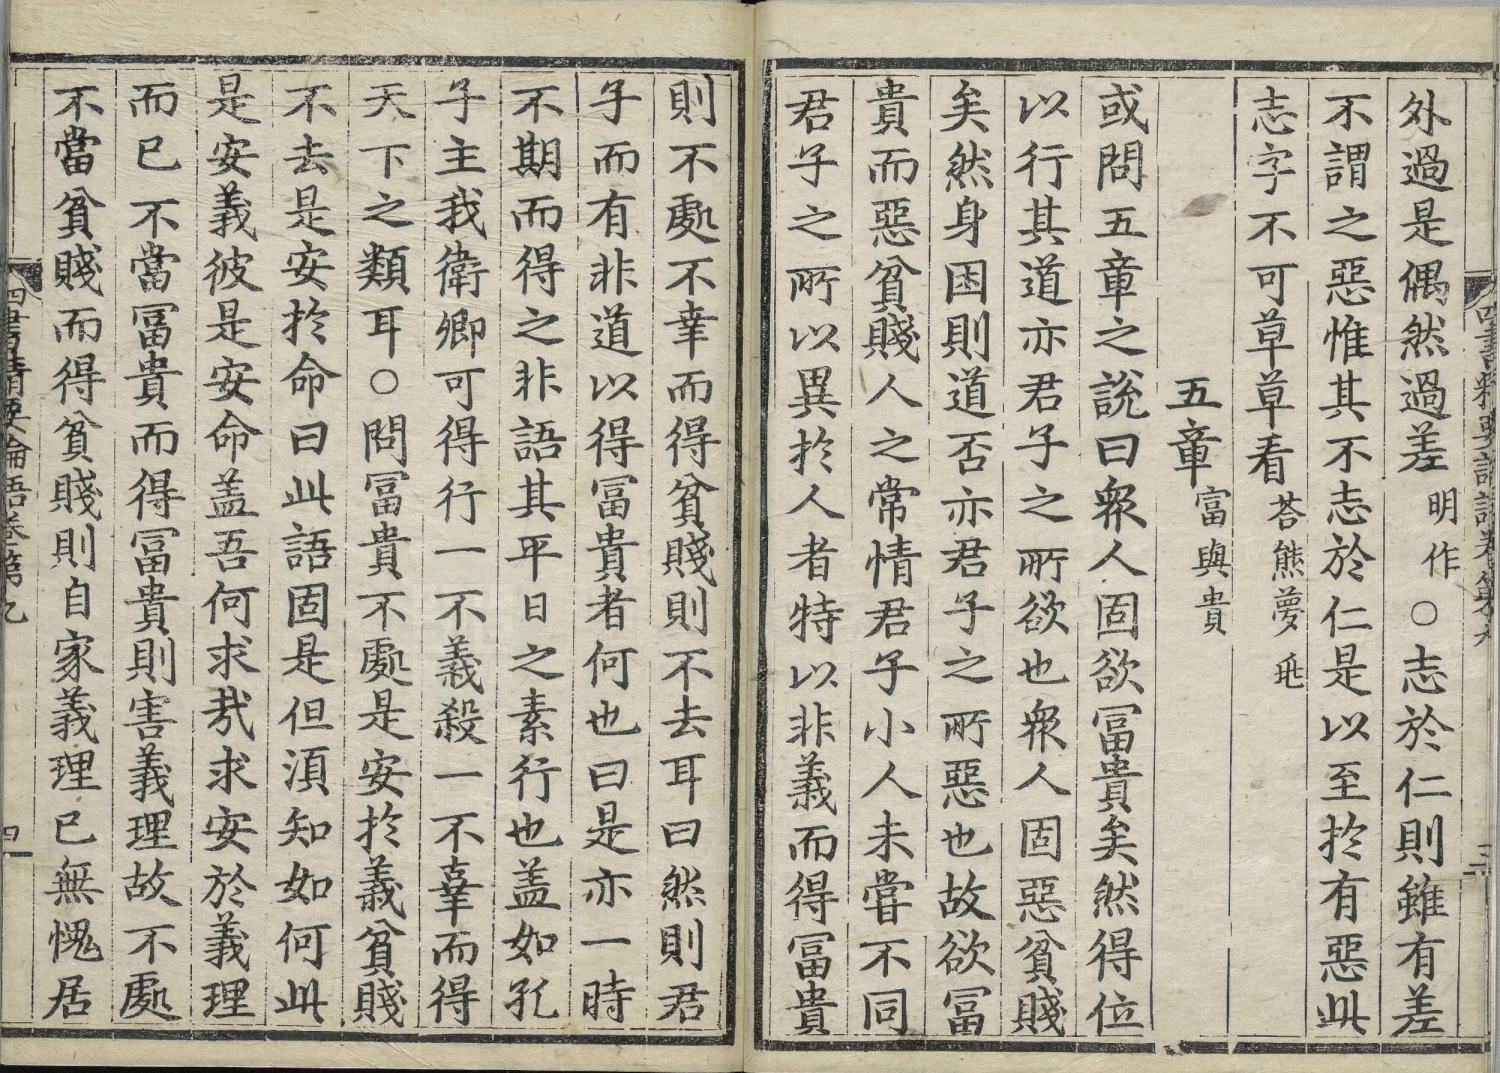 外過是偶然過差明作○志於仁則雖有差
不謂之惡惟其不志於仁是以至於有惡此
志字不可草草看荅熊夢兆
五章富與貴
或問五章之說曰衆人固欲冨貴矣然得位
以行其道亦君子之所欲也衆人固惡貧賤
矣然身困則道否亦君子之所惡也故欲冨
貴而惡貧賤人之常情君子小人未嘗不同
君子之所以異於人者特以非義而得冨貴
則不處不幸而得貧賤則不去耳曰然則君
子而有非道以得冨貴者何也曰是亦一時
不期而得之非語其平日之素行也盖如孔
子主我衛卿可得行一不義殺一不辜而得
天下之類耳○問冨貴不處是安於義貧賤
不去是安於命曰此語固是但須知如何此
是安義彼是安命盖吾何求哉求安於義理
而已不當冨貴而得冨貴則害義理故不處
不當貧賤而得貧賤則自家義理已無愧居
四書精要論語卷第九
四